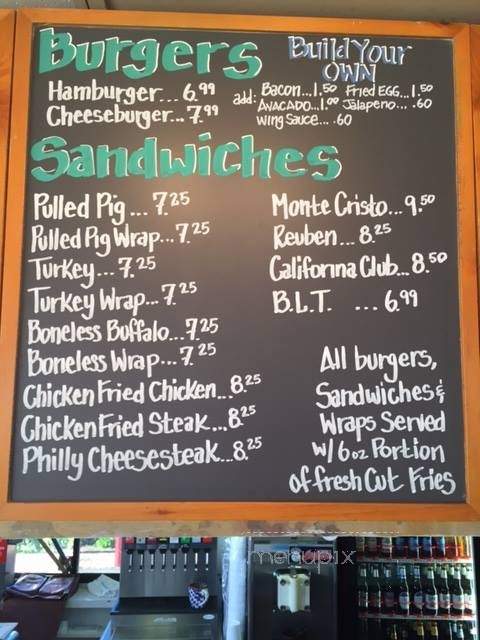 Burgers
Build Your
OWN
Hamburger... 6.99
Cheeseburger... 7.99
add: Bacon...1.50 Fried EGG...1.50
AVACADO...1.00 Jalapeno... .60
wing Sauce... .60
Sandwiches
Pulled Pig... 7.25
Pulled Pig Wrap... 7.25
Turkey... 7.25
Turkey Wrap... 7.25
Boneless Buffalo...7.25
Boneless Wrap... 7.25
Chicken Fried Chicken...8.25
Chicken Fried Steak...8.25
Philly Cheesesteak...8.25
Monte Cristo... 9.50
Reuben... 8.25
California Club... 8.50
B.L.T. ... 6.99
All burgers,
Sandwiches &
Wraps Served
w/ 6 oz Portion
of fresh Cut Fries
menupix